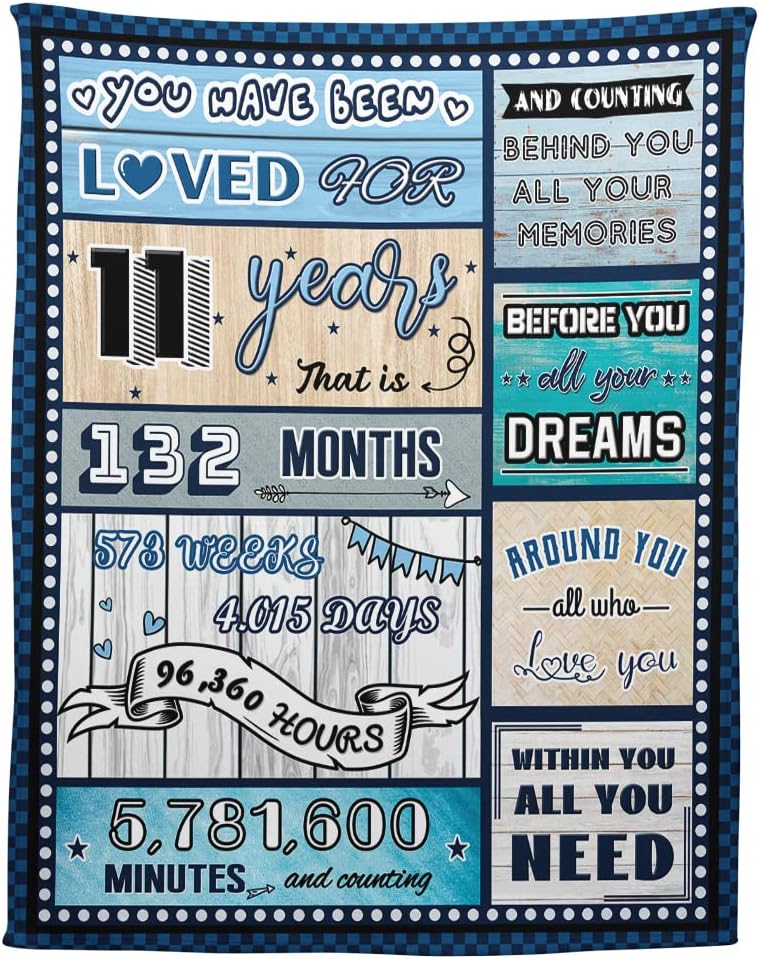 YOU HAVE BEEN
LOVED FOR
11 years
That is
132 MONTHS
573 WEEKS
4.015 DAYS
96,360 HOURS
5,781,600
MINUTES and counting
AND COUNTING
BEHIND YOU
ALL YOUR
MEMORIES
BEFORE YOU
all your
DREAMS
AROUND YOU
all who
Love you
WITHIN YOU
ALL YOU
NEED